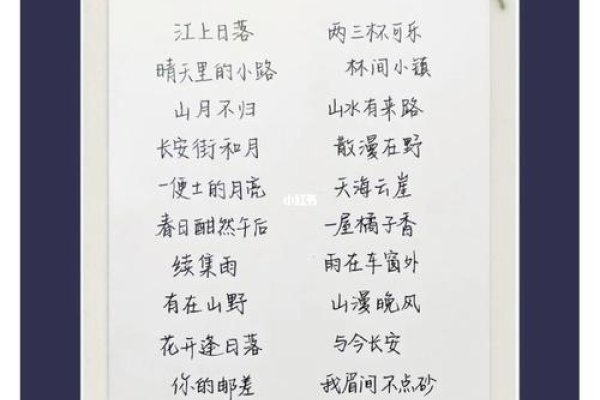 江上日落 两三杯可乐
晴天里的小路 杯间小镇
山月不归 山水有来路
长安街和月 散漫在野
一便士的月亮 天海云崖
小红书
春日酣然午后 一屋橘子香
续集雨 雨在车窗外
有在山野 山漫晚风
花开逢日落 与今长安
你的邮差 我眉间不点砂